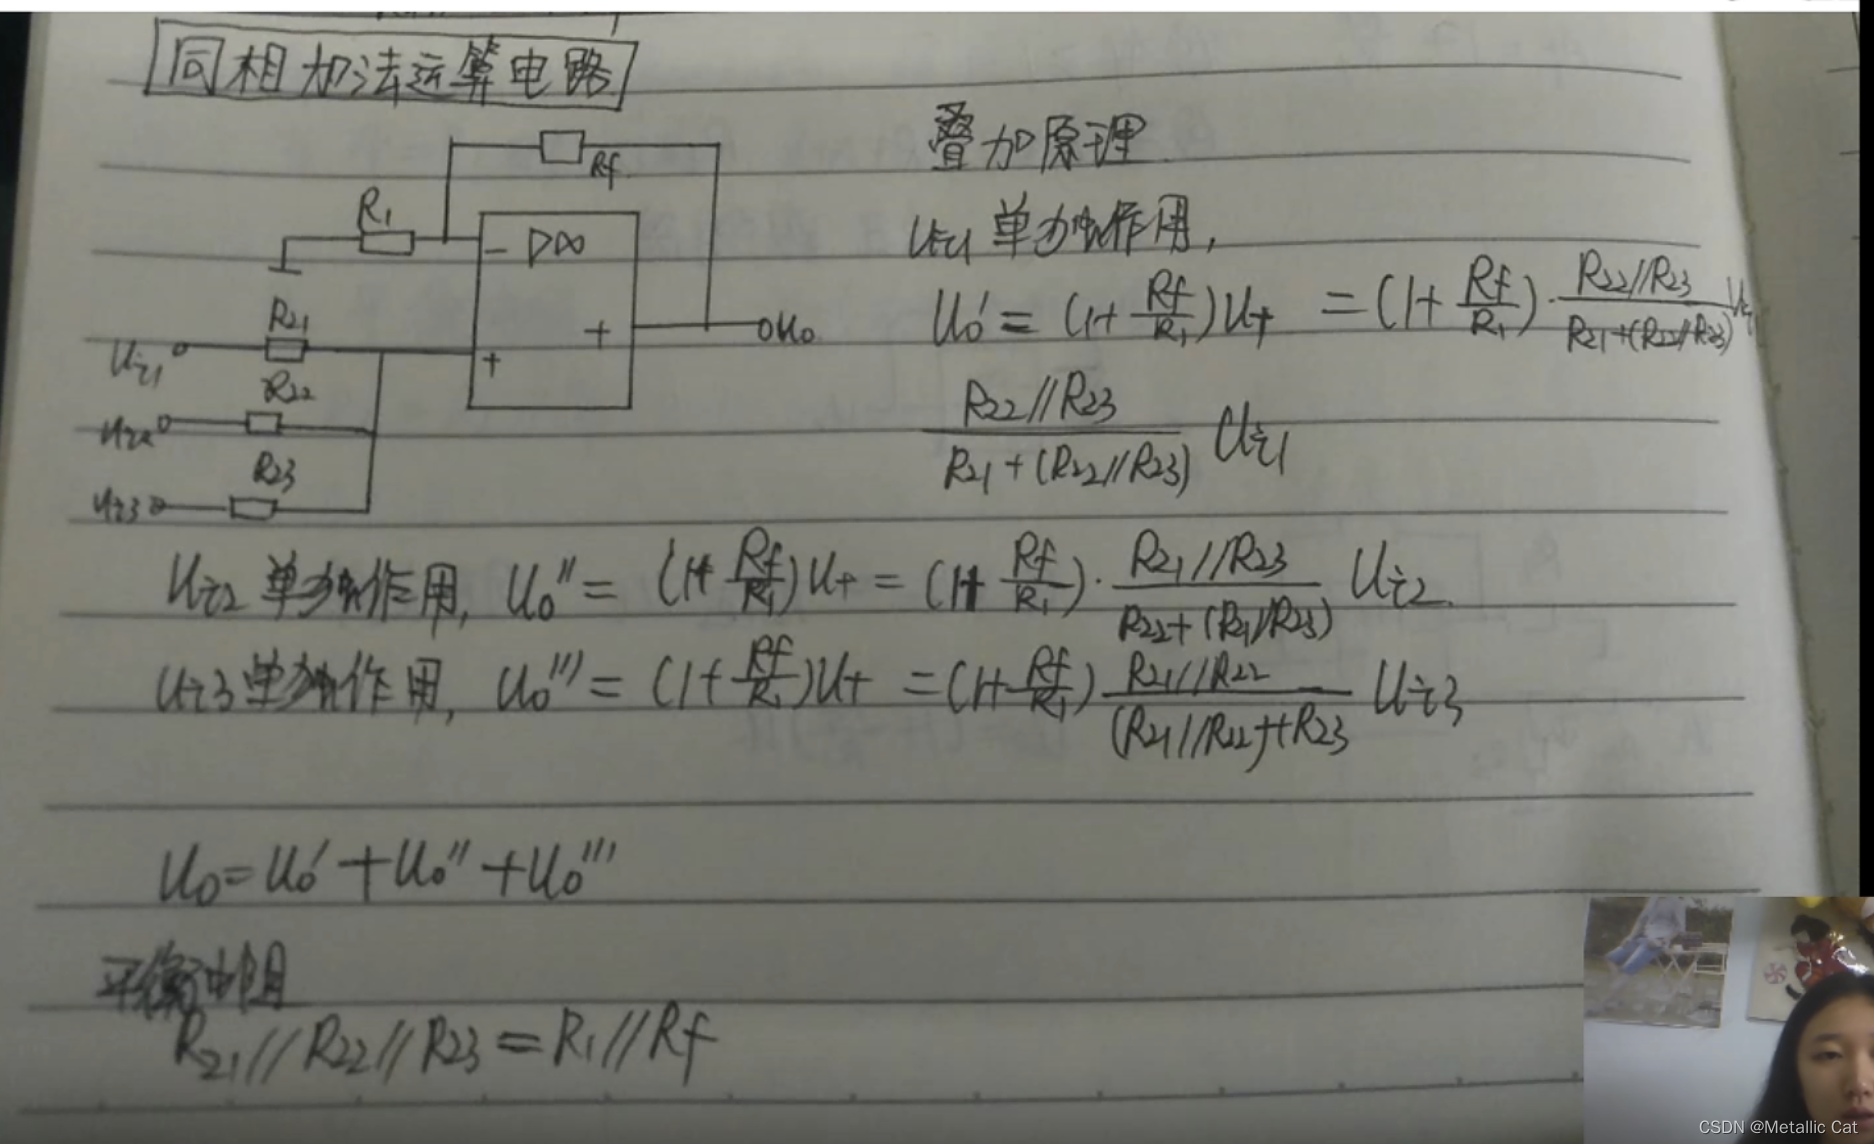 同相加法运算电路
叠加原理
Rf
R1
- ▷∞
+
+
uo
R21
Ui1
R22
Ui2
R23
Ui3
Ui1 单独作用,
Uo' = (1+Rf/R1)U+ = (1+Rf/R1)·R22//R23/R21+(R22//R23) Ui1
R22//R23/R21+(R22//R23) Ui1
Ui2 单独作用, Uo'' = (1+Rf/R1)U+ = (1+Rf/R1)·R21//R23/R22+(R21//R23) Ui2
Ui3 单独作用, Uo''' = (1+Rf/R1)U+ = (1+Rf/R1) R21//R22/(R21//R22)+R23 Ui3
Uo = Uo' + Uo'' + Uo'''
平衡电阻
R21//R22//R23 = R1//Rf
CSDN @Metallic Cat